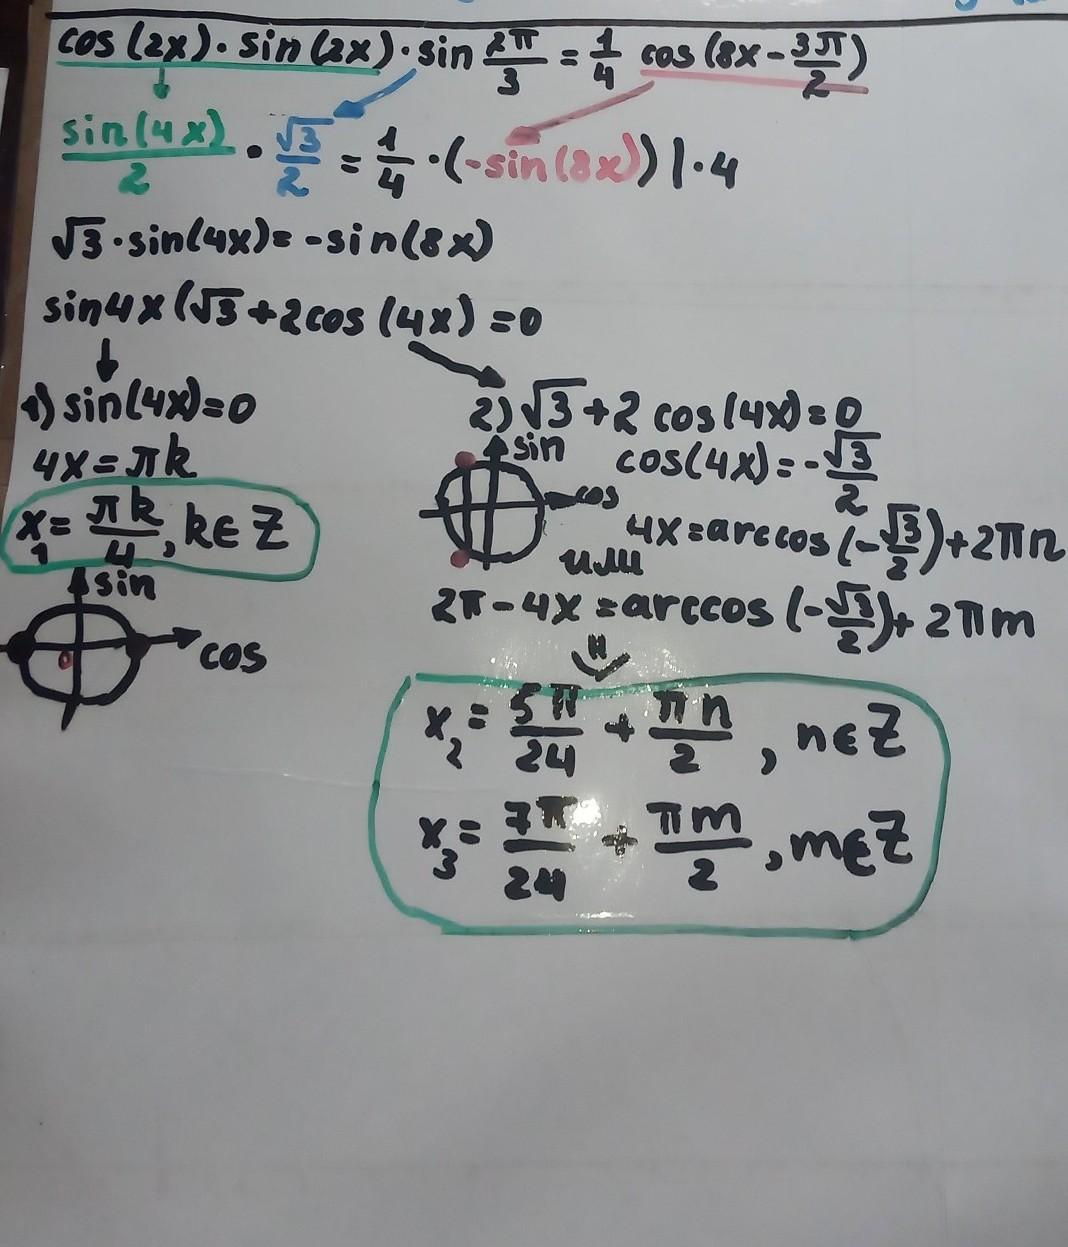 cos(2x)·sin(2x)·sin 2π/3 = 1/4 cos(8x - 3π/2)
sin(4x)/2 · √3/2 = 1/4 · (-sin(8x)) | · 4
√3·sin(4x) = -sin(8x)
sin4x(√3 + 2cos(4x) = 0
1) sin(4x) = 0
4x = πk
x₁ = πk/4, k∈Z
sin
cos
2) √3 + 2 cos(4x) = 0
sin
cos
cos(4x) = -√3/2
4x = arccos(-√3/2) + 2πn
или
2π - 4x = arccos(-√3/2) + 2πm
x₂ = 5π/24 + πn/2, n∈Z
x₃ = 7π/24 + πm/2, m∈Z